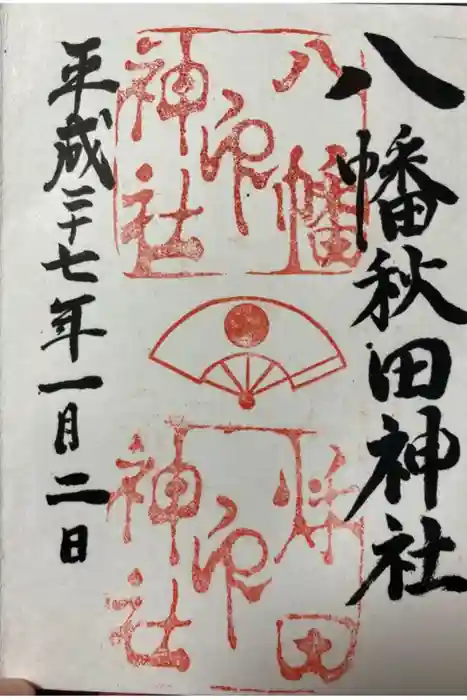 八幡秋田神社
八幡
印
神社
秋田
印
神社
平成二十七年一月二日